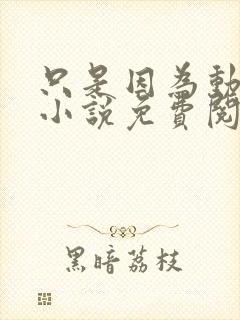 只是因為動
小說免費閱
黑暗荔枝